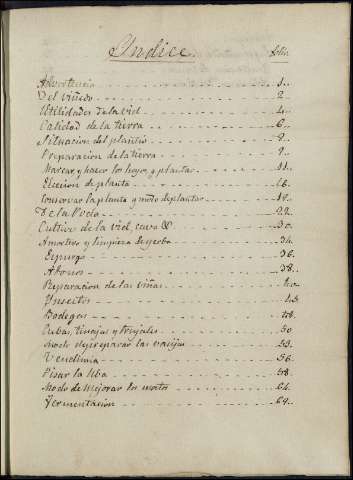 Yndice.
folio
Advertencia 1..
Del viñedo 2
Utilidades de la vid 4..
Calidad de la tierra 6..
Situacion del plantio
Preparacion de la tierra
Marcar, y hacer los hoyos, y plantar 11..
Eleccion de planta 16..
Conservar la planta y modo de plantar
De la Poda 22..
Cultivo de la vid, cava &. 30.
y limpieza de yerba 34.
Espurgo 36.
Abonos 38..
Reparacion de las viñas 40
Ynsectos 43
Bodegas 48.
Cubas, tinajas y trujales 50
Modo de preparar las vasijas 53.
Vendimia 56.
Pisar la Uba 58.
Modo de mejorar los mostos 64.
Fermentacion 69..